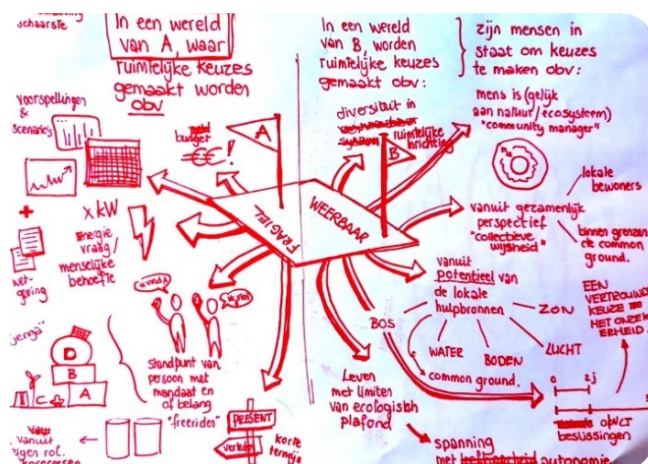 schaarste
In een wereld
van A, waar
ruimtelijke keuzes
gemaakt worden
obv
voorspellingen
&
scenario's
budget
€€!
A
+
x kW
Energie
vraag/
menselijke
behoefte
wet-
FRAGIEL
WEERBAAR
D
B
A
C
standpunt van
persoon met
mandaat en
of belang
"freerider"
vanuit
eigen rol.
PRESENT
korte
termijn
In een wereld
van B, worden
ruimtelijke keuzes
gemaakt obv:
diversiteit in
ruimtelijke
inrichting
B
zijn mensen in
staat om keuzes
te maken obv:
mens is (gelijk
aan natuur/ecosysteem)
"community manager"
vanuit gezamenlijk
perspectief
"collectieve
wijsheid"
lokale
bewoners
binnen grenzen
de common
ground.
vanuit
potentieel van
de lokale
hulpbronnen
BOS
WATER
BODEN
LUCHT
ZON
common ground.
EEN
KEUZE
HET
Leven
met limiten
van ecologisch
plafond
spanning
met leefbaarheid autonomie
0
2j
0
beslissingen